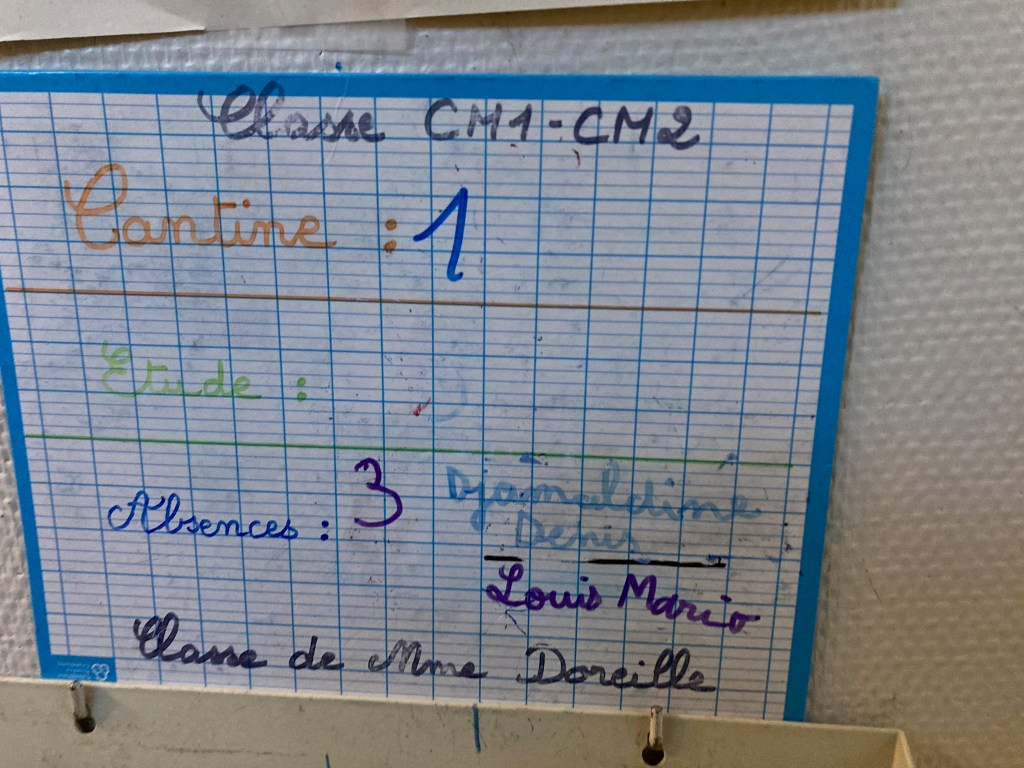 Classe CM1-CM2
Cantine : 1
Etude :
Absences : 3 Djamaldine
Denis
Louis Mario
Classe de Mme Doreille